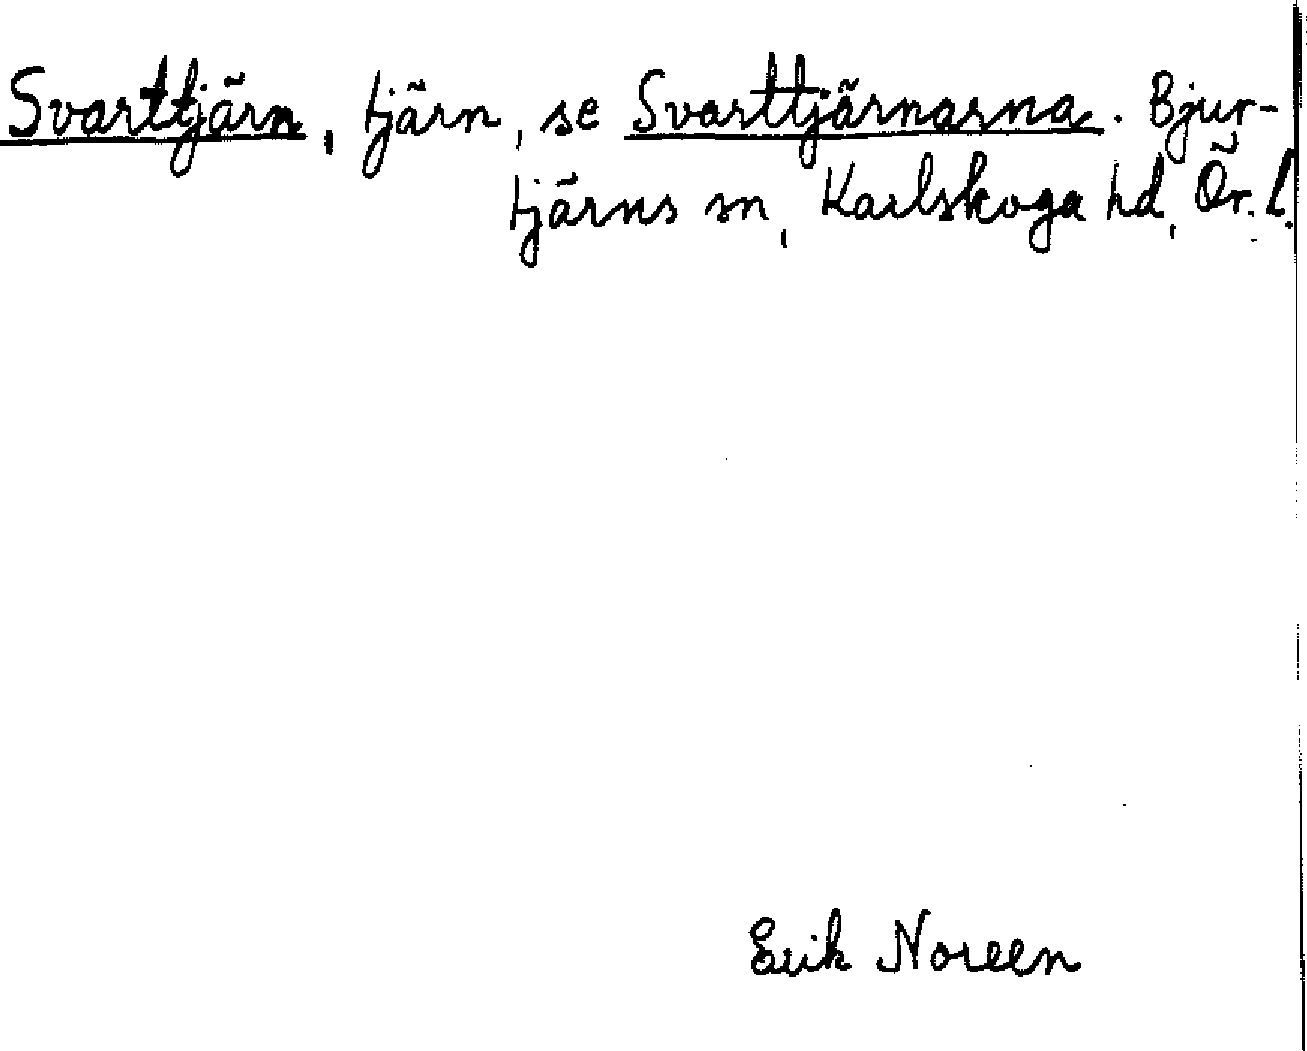 Svarttjärn, tjärn, se Svarttjärnarna. Bjur-
tjärns sn, Karlskoga hd, Ör. l.
Erik Noreen